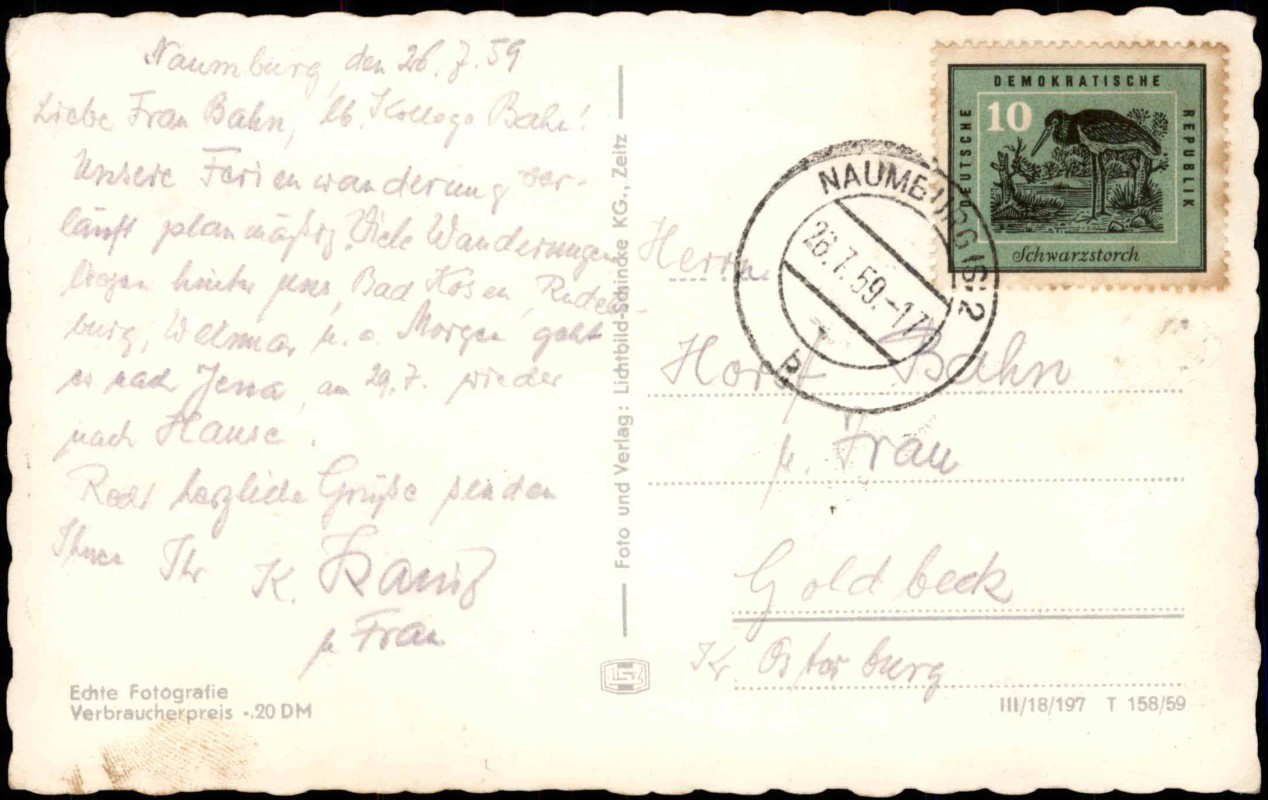 Naumburg, den 26.7.59
Liebe Frau Bahn, lb. Kollege Bahn!
Unsere Ferienwanderung ver-
läuft planmäßig. Viele Wanderungen
liegen hinter uns, Bad Kösen, Rudels-
burg, Weimar u.a. Morgen geht
es nach Jena, am 29.7. wieder
nach Hause.
Recht herzliche Grüße senden
Ihnen Ihr K.
u. Frau
Echte Fotografie
Verbraucherpreis -.20 DM
Foto und Verlag: Lichtbild-Schincke KG., Zeitz
DEUTSCHE DEMOKRATISCHE REPUBLIK
10
Schwarzstorch
NAUMBURG (S) 2
26.7.59.-17
b
Herrn
Horst Bahn
u. Frau
Goldbeck
Kr. Osterburg
III/18/197 T 158/59